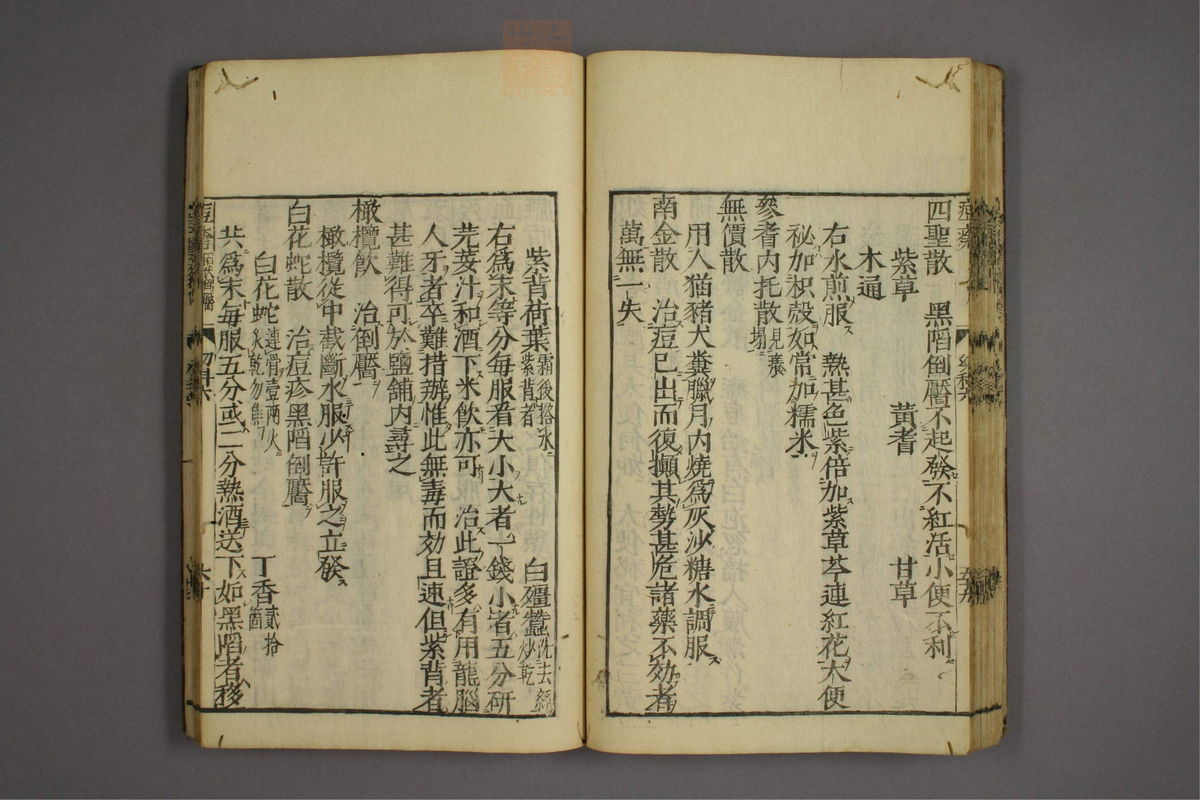 四聖散　黑陷倒靨不起發不紅活小便不利
紫草　黃耆　甘草
木通
右水煎服　熱甚色紫倍加紫草芩連紅花大便
秘加枳殼如常加糯米
參耆内托散見癢塌
無價散
用人猫豬犬糞臘月内燒爲灰沙糖水調服
南金散　治痘已出而復攧其勢甚危諸藥不効者
萬無一失
紫背荷葉霜後搭水紫背者　白殭蠶洗去絲炒乾
右爲末等分每服看大小大者一錢小者五分研
芫荽汁和酒下米飲亦可　治此證多有用龍腦
人牙者卒難措辦惟此無毒而効且速但紫背者
甚難得可於鹽鋪内尋之
橄欖飲　治倒靨
橄欖從中截斷水服少許服之立發
白花蛇散　治痘疹黑陷倒靨
白花蛇連骨壹兩火炙乾勿焦　丁香貳拾箇
共爲末每服五分或二分熱酒送下如黑陷者移